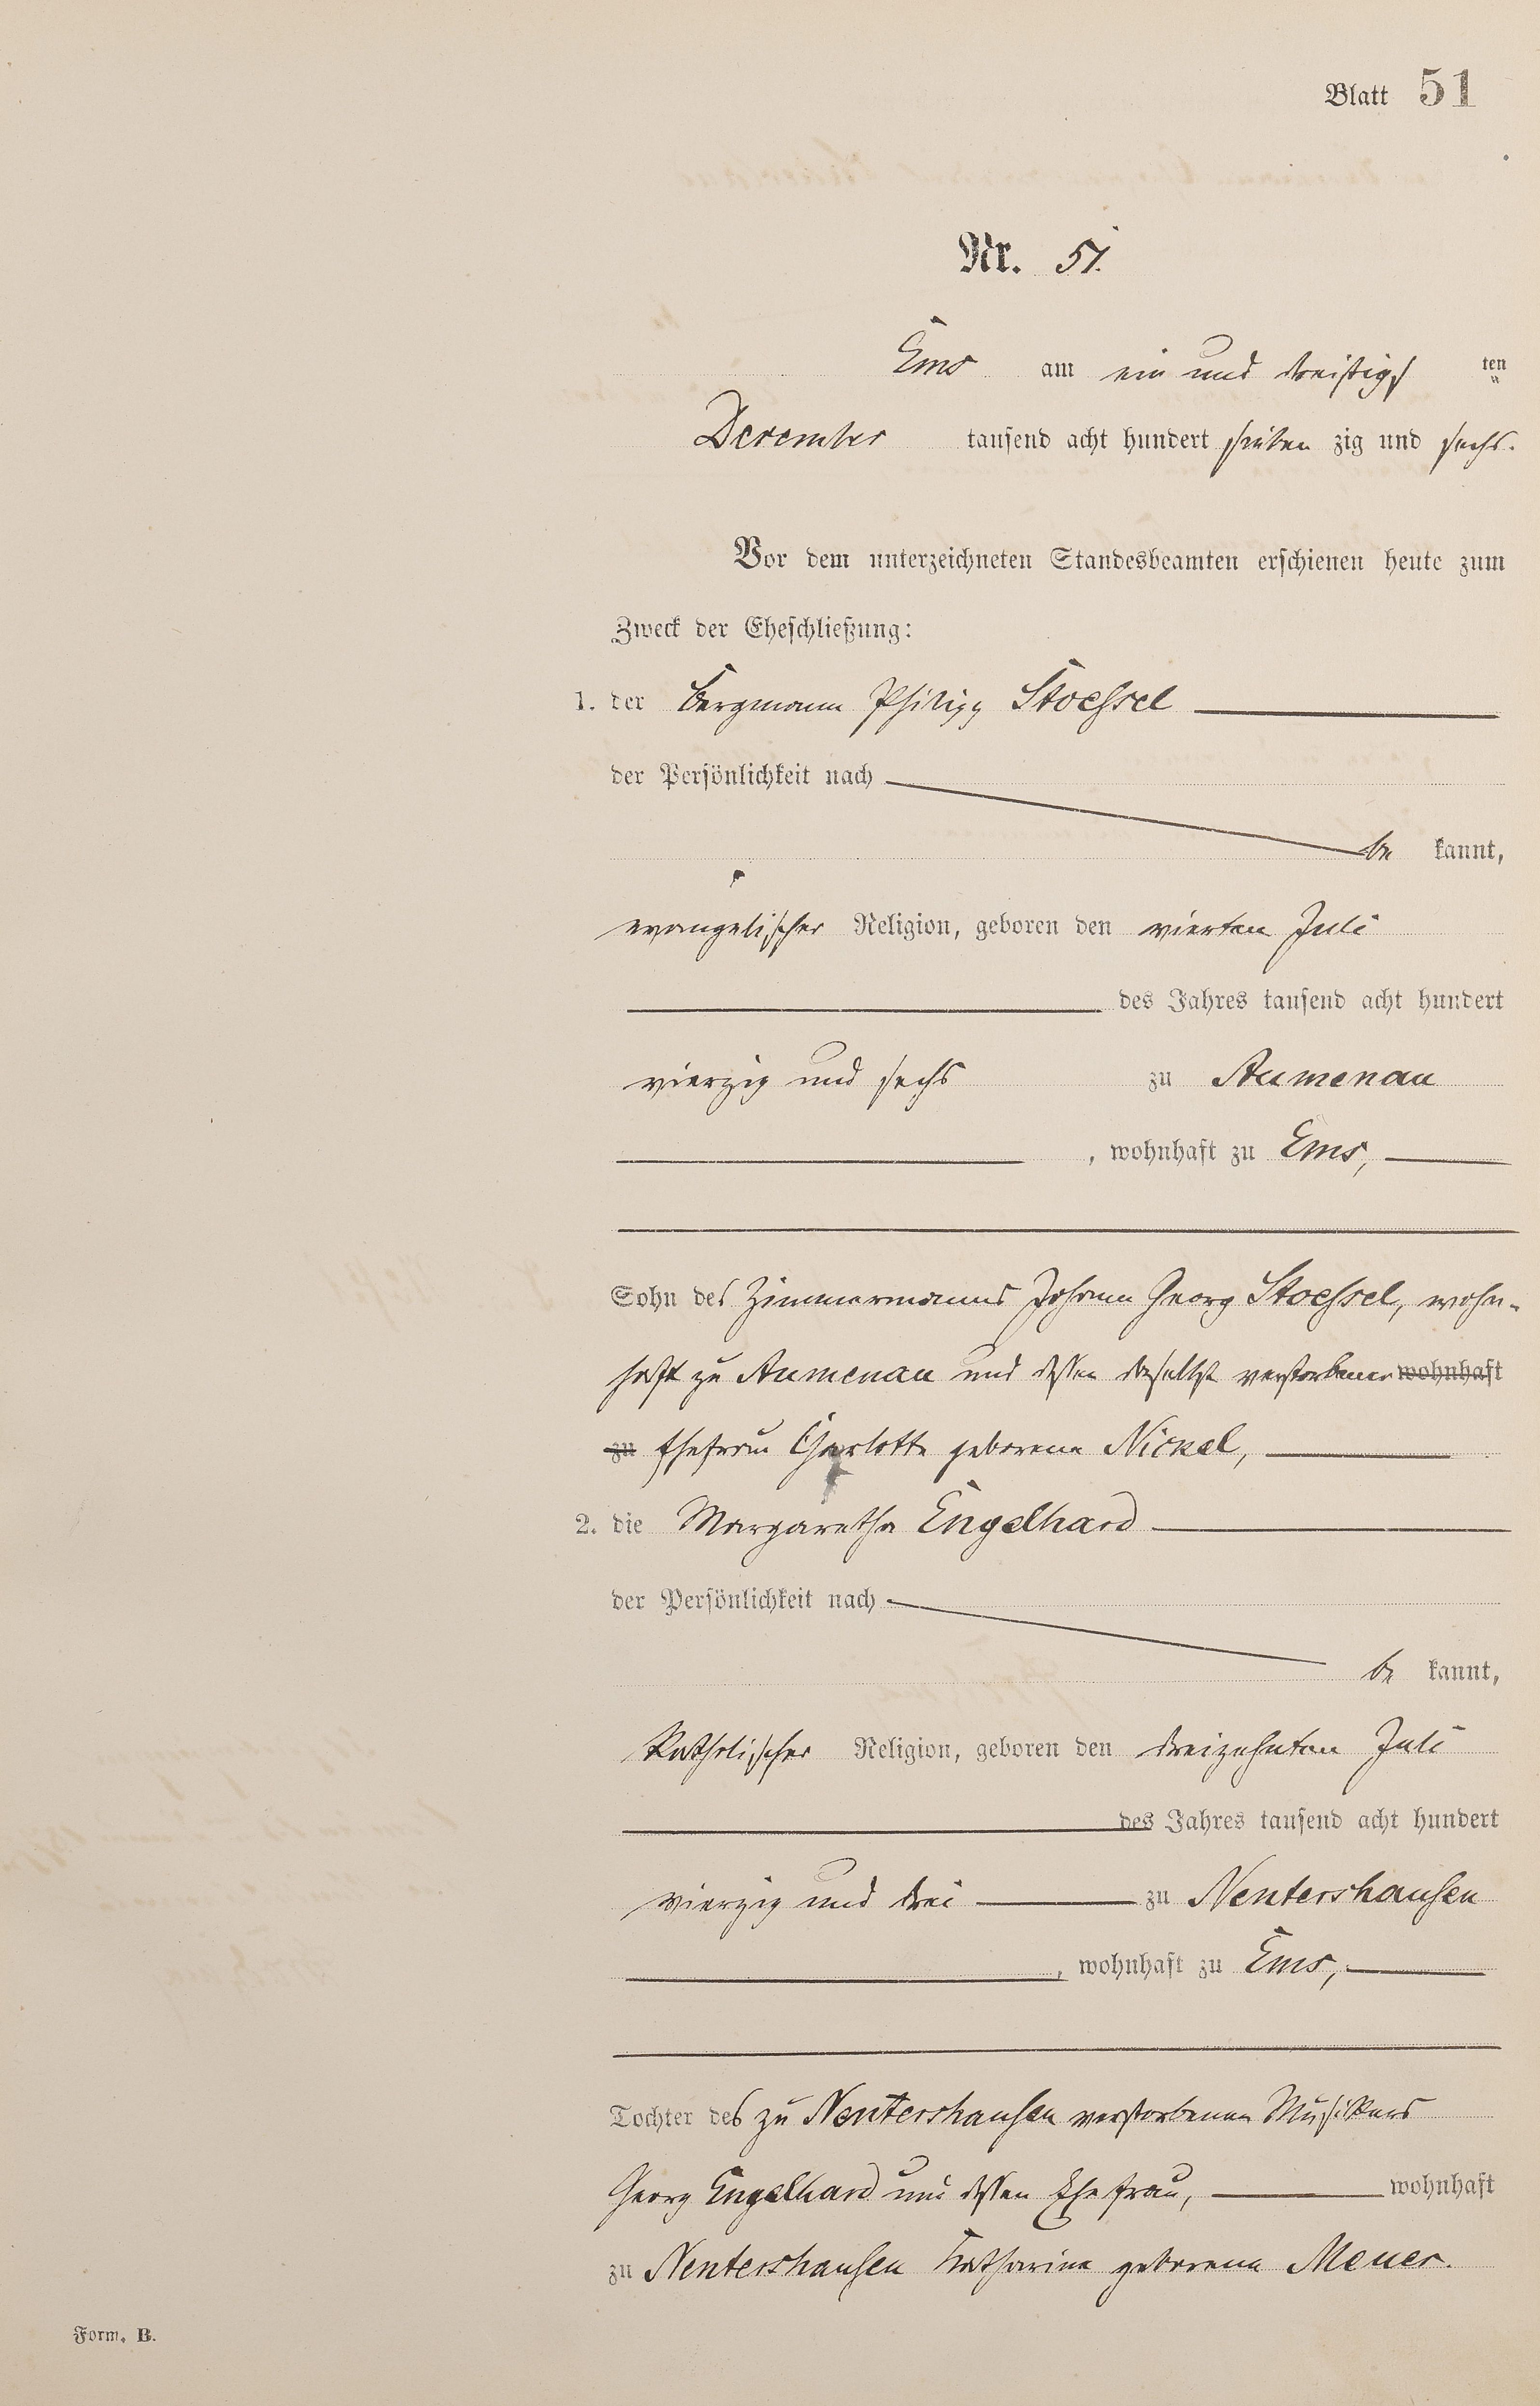 Blatt 51
Nr. 51.
Ems am ein und dreißigsten
December tausend acht hundert sieben zig und sechs.
Vor dem unterzeichneten Standesbeamten erschienen heute zum
Zweck der Eheschließung:
1. der Bergmann Philipp Stoessel
der Persönlichkeit nach
be kannt,
evangelischer Religion, geboren den vierten Juli
des Jahres tausend acht hundert
vierzig und sechs zu Aumenau
, wohnhaft zu Ems,
Sohn des Zimmermanns Johann Georg Stoessel, wohn-
haft zu Aumenau und dessen daselbst verstorbener wohnhaft
zu Ehefrau Charlotte geborene Nickel,
2. die Margaretha Engelhard
der Persönlichkeit nach
be kannt,
katholischer Religion, geboren den dreizehnten Juli
des Jahres tausend acht hundert
vierzig und drei zu Nentershausen
, wohnhaft zu Ems,
Tochter des zu Nentershausen verstorbenen Musikers
Georg Engelhard und dessen Ehefrau, wohnhaft
zu Nentershausen Katharina geborene Meuer.
Form. B.